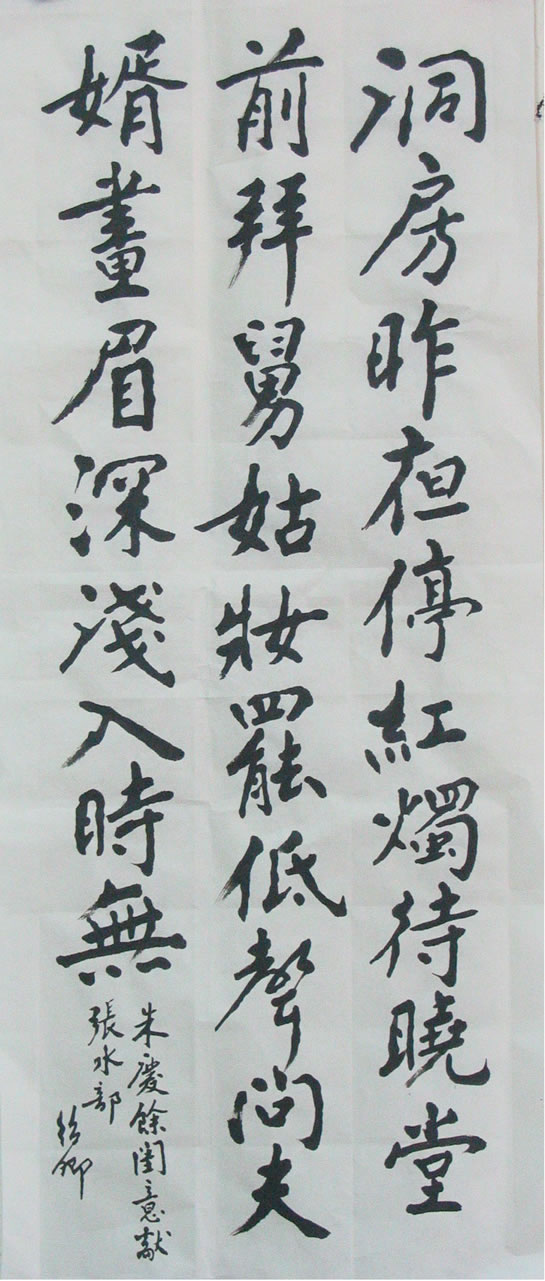 洞房昨夜停紅燭待曉堂
前拜舅姑妝罷低聲問夫
婿畫眉深淺入時無
朱慶餘閨意獻
張水部